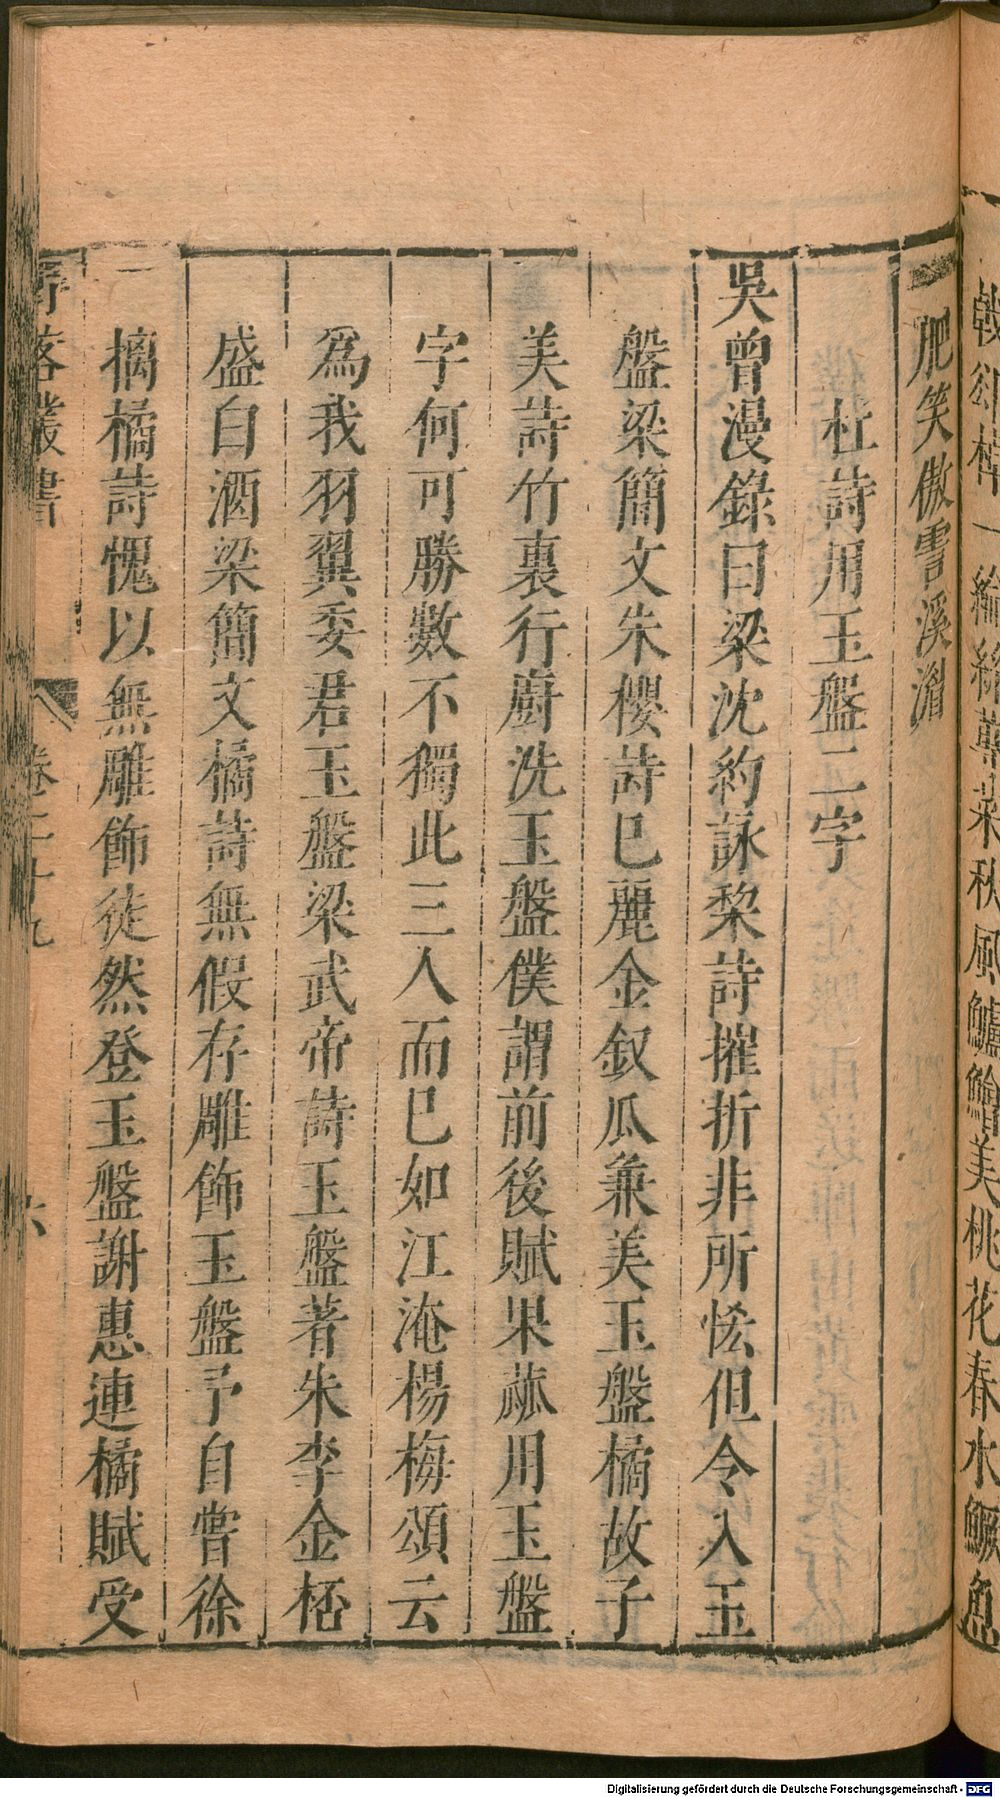 肥笑傲霅溪湄
杜詩用玉盤二字
吳曾漫錄曰梁沈約詠棃詩摧折非所恡但令入玉
盤梁簡文朱櫻詩已麗金釵瓜兼美玉盤橘故子
美詩竹裏行廚洗玉盤僕謂前後賦果蓏用玉盤
字何可勝數不獨此三人而已如江淹楊梅頌云
為我羽翼委君玉盤梁武帝詩玉盤著朱李金桮
盛白酒梁簡文橘詩無假存雕飾玉盤予自嘗徐
摛橘詩愧以無雕飾徒然登玉盤謝惠連橘賦受
野客叢書
卷二十九
六
一綸
秋風鱸鱠美桃花春水鱖魚
Digitalisierung gefördert durch die Deutsche Forschungsgemeinschaft - DFG